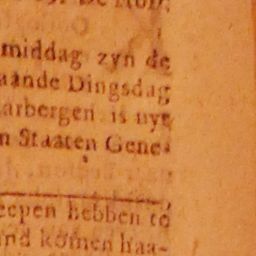 De
middag zyn de
aande Dingsdag
arbergen is uyt
n Staaten Gene-
eepen hebben te
and komen haa-